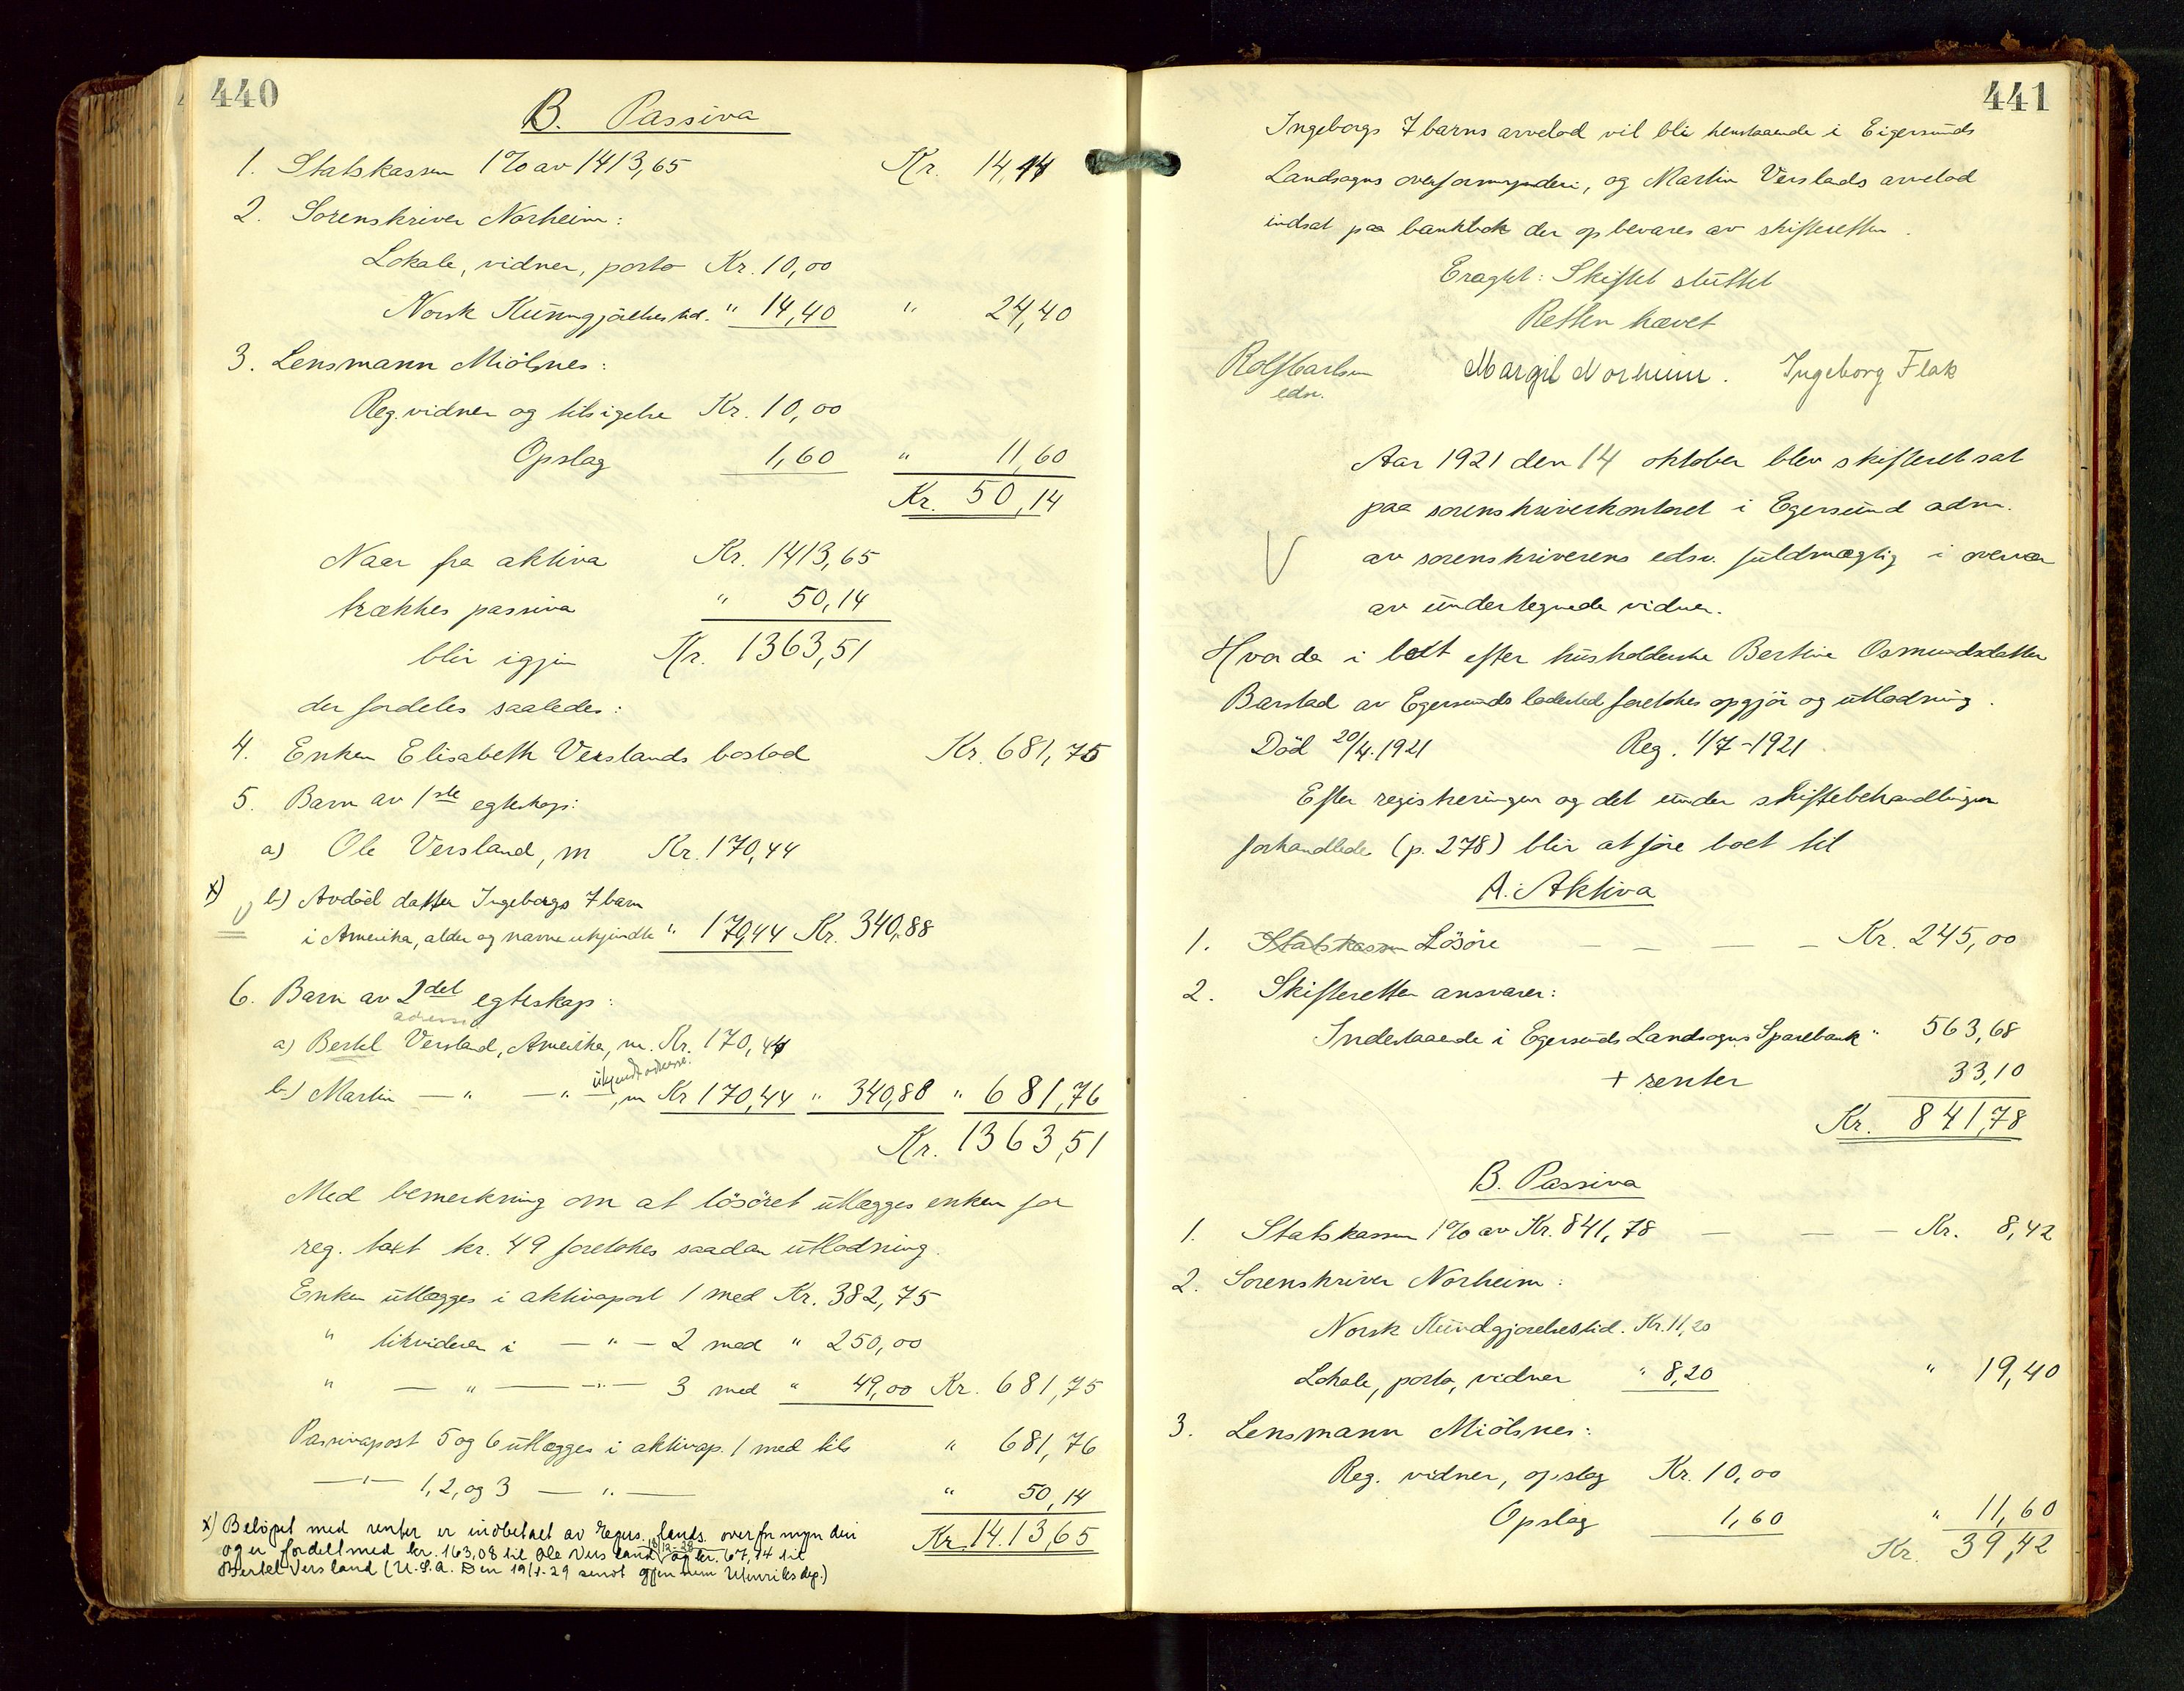 440
B. Passiva
1. Statskassen 1% av 1413,65 Kr. 14,14
2. Sorenskriver Norheim:
Lokale, vidner, porto Kr. 10,00
Norsk Kunngjörelsestid. " 14,40 " 24,40
3. Lensmann Miölsnes:
Reg. vidner og tilsigelse Kr. 10,00
Opslag 1,60 " 11,60
Kr. 50,14
Naar fra aktiva Kr. 1413,65
trækkes passiva " 50,14
blir igjen Kr. 1363,51
der fordeles saaledes:
4. Enken Elisabeth Verslands boslod Kr. 681,75
5. Barn av 1ste egteskap:
a) Ole Versland, m Kr. 170,44
x) b) Avdöd datter Ingeborgs 7 barn
i Amerika, alder og navne ukjendte " 170,44 Kr. 340,88
6. Barn av 2det egteskap:
a) Bertel Versland, Amerika, m. Kr. 170,44
ukjendt adresse.
b) Martin — " — " , m Kr 170,44 " 340,88 " 681,76
Kr. 1363,51
Med bemerkning om at lösöret utlægges enken for
reg. takst kr. 49 foretokes saadan utlodning.
Enken utlægges i aktivapost 1 med Kr. 382,75
" likviderer i — " — 2 med " 250,00
" — " — " — 3 med " 49,00 Kr. 681,75
Passivapost 5 og 6 utlægges i aktivap. 1 med tils " 681,76
— " — 1, 2, og 3 — " — " 50,14
Kr. 1413,65
x) Belöpet med renter er indbetalt av Egers. lands. overformynderi
18/12-28
og er fordelt med kr. 163,08 til Ole Versland og kr. 67,14 til
Bertel Versland (U.S.A. Den 19/1-29 sendt gjennem Utenriksdep.)
441
Ingeborgs 7 barns arvelod vil bli henstaaende i Eigersunds
Landsogns overformynderi, og Martin Verslands arvelod
indsat paa bankbok der opbevares av skifteretten.
Eragtet: Skiftet sluttet
Retten hævet
Rolf Carlsen Margit Norheim. Ingeborg Flak
edsv.
Aar 1921 den 14 oktober blev skifteret sat
paa sorenskriverkontoret i Egersund adm.
av sorenskriverens edsv. fuldmægtig i overvær
av undertegnede vidner.
Hvor da i boet efter husholderske Bertine Osmundsdatter
Barstad av Egersunds ladested foretokes opgjör og utlodning.
Död 20/4. 1921 Reg. 1/7-1921
Efter registreringen og det under skiftebehandlingen
forhandlede (p. 278) blir at före boet til
A. Aktiva
1. Statskassen Lösöre — — — — Kr. 245,00
2. Skifteretten ansvarer:
Indestaaende i Egersunds Landsogns Sparebank " 563,68
+ renter 33,10
Kr. 841,78
B. Passiva
1. Statskassen 1% av Kr. 841,78 — — — Kr. 8,42
2. Sorenskriver Norheim:
Norsk Kundgjorelsestid. Kr. 11,20
Lokale, porto, vidner " 8,20 " 19,40
3. Lensmann Miölsnes:
Reg. vidner, opslag Kr. 10,00
Opslag 1,60 " 11,60
Kr. 39,42